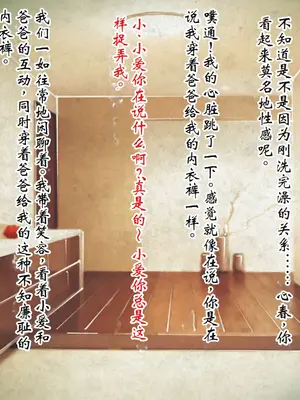 不知道是不是因为刚洗完澡的关系……心春，你
看起来莫名地性感呢。
噗通！我的心脏跳了一下。感觉就像在说，你是在
说我穿着爸爸给我的内衣裤一样。
小、小爱你在说什么啊？真是的～小爱你总是这
样捉弄我。
我们一如往常地闲聊着。我带着笑容，看着小爱和
爸爸的互动，同时穿着爸爸给我的这种不知廉耻的
内衣裤。